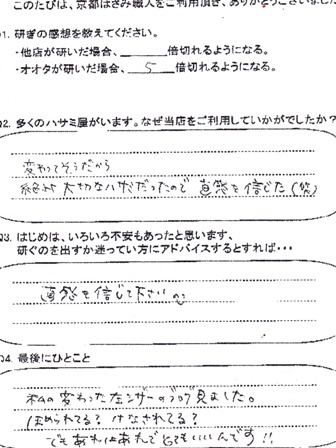 このたびは、京都はさみ職人をご利用頂き、ありがとうございました
Q1. 研ぎの感想を教えてください。
・他店が研いだ場合、______倍切れるようになる。
・オオタが研いだ場合、5倍切れるようになる。
Q2. 多くのハサミ屋がいます。なぜ当店をご利用していかがでしたか?
変わってそうだから
大切なハサミだったので 直感を信じた(笑)
Q3. はじめは、いろいろ不安もあったと思います、
研ぐのを出すか迷ってい方にアドバイスするとすれば・・・
直感を信じて下さい。
Q4. 最後にひとこと
私の変わった左シザーのブログ見ました。
ほめられてる? けなされてる?
でもあれはあれでとてもいいんです!!